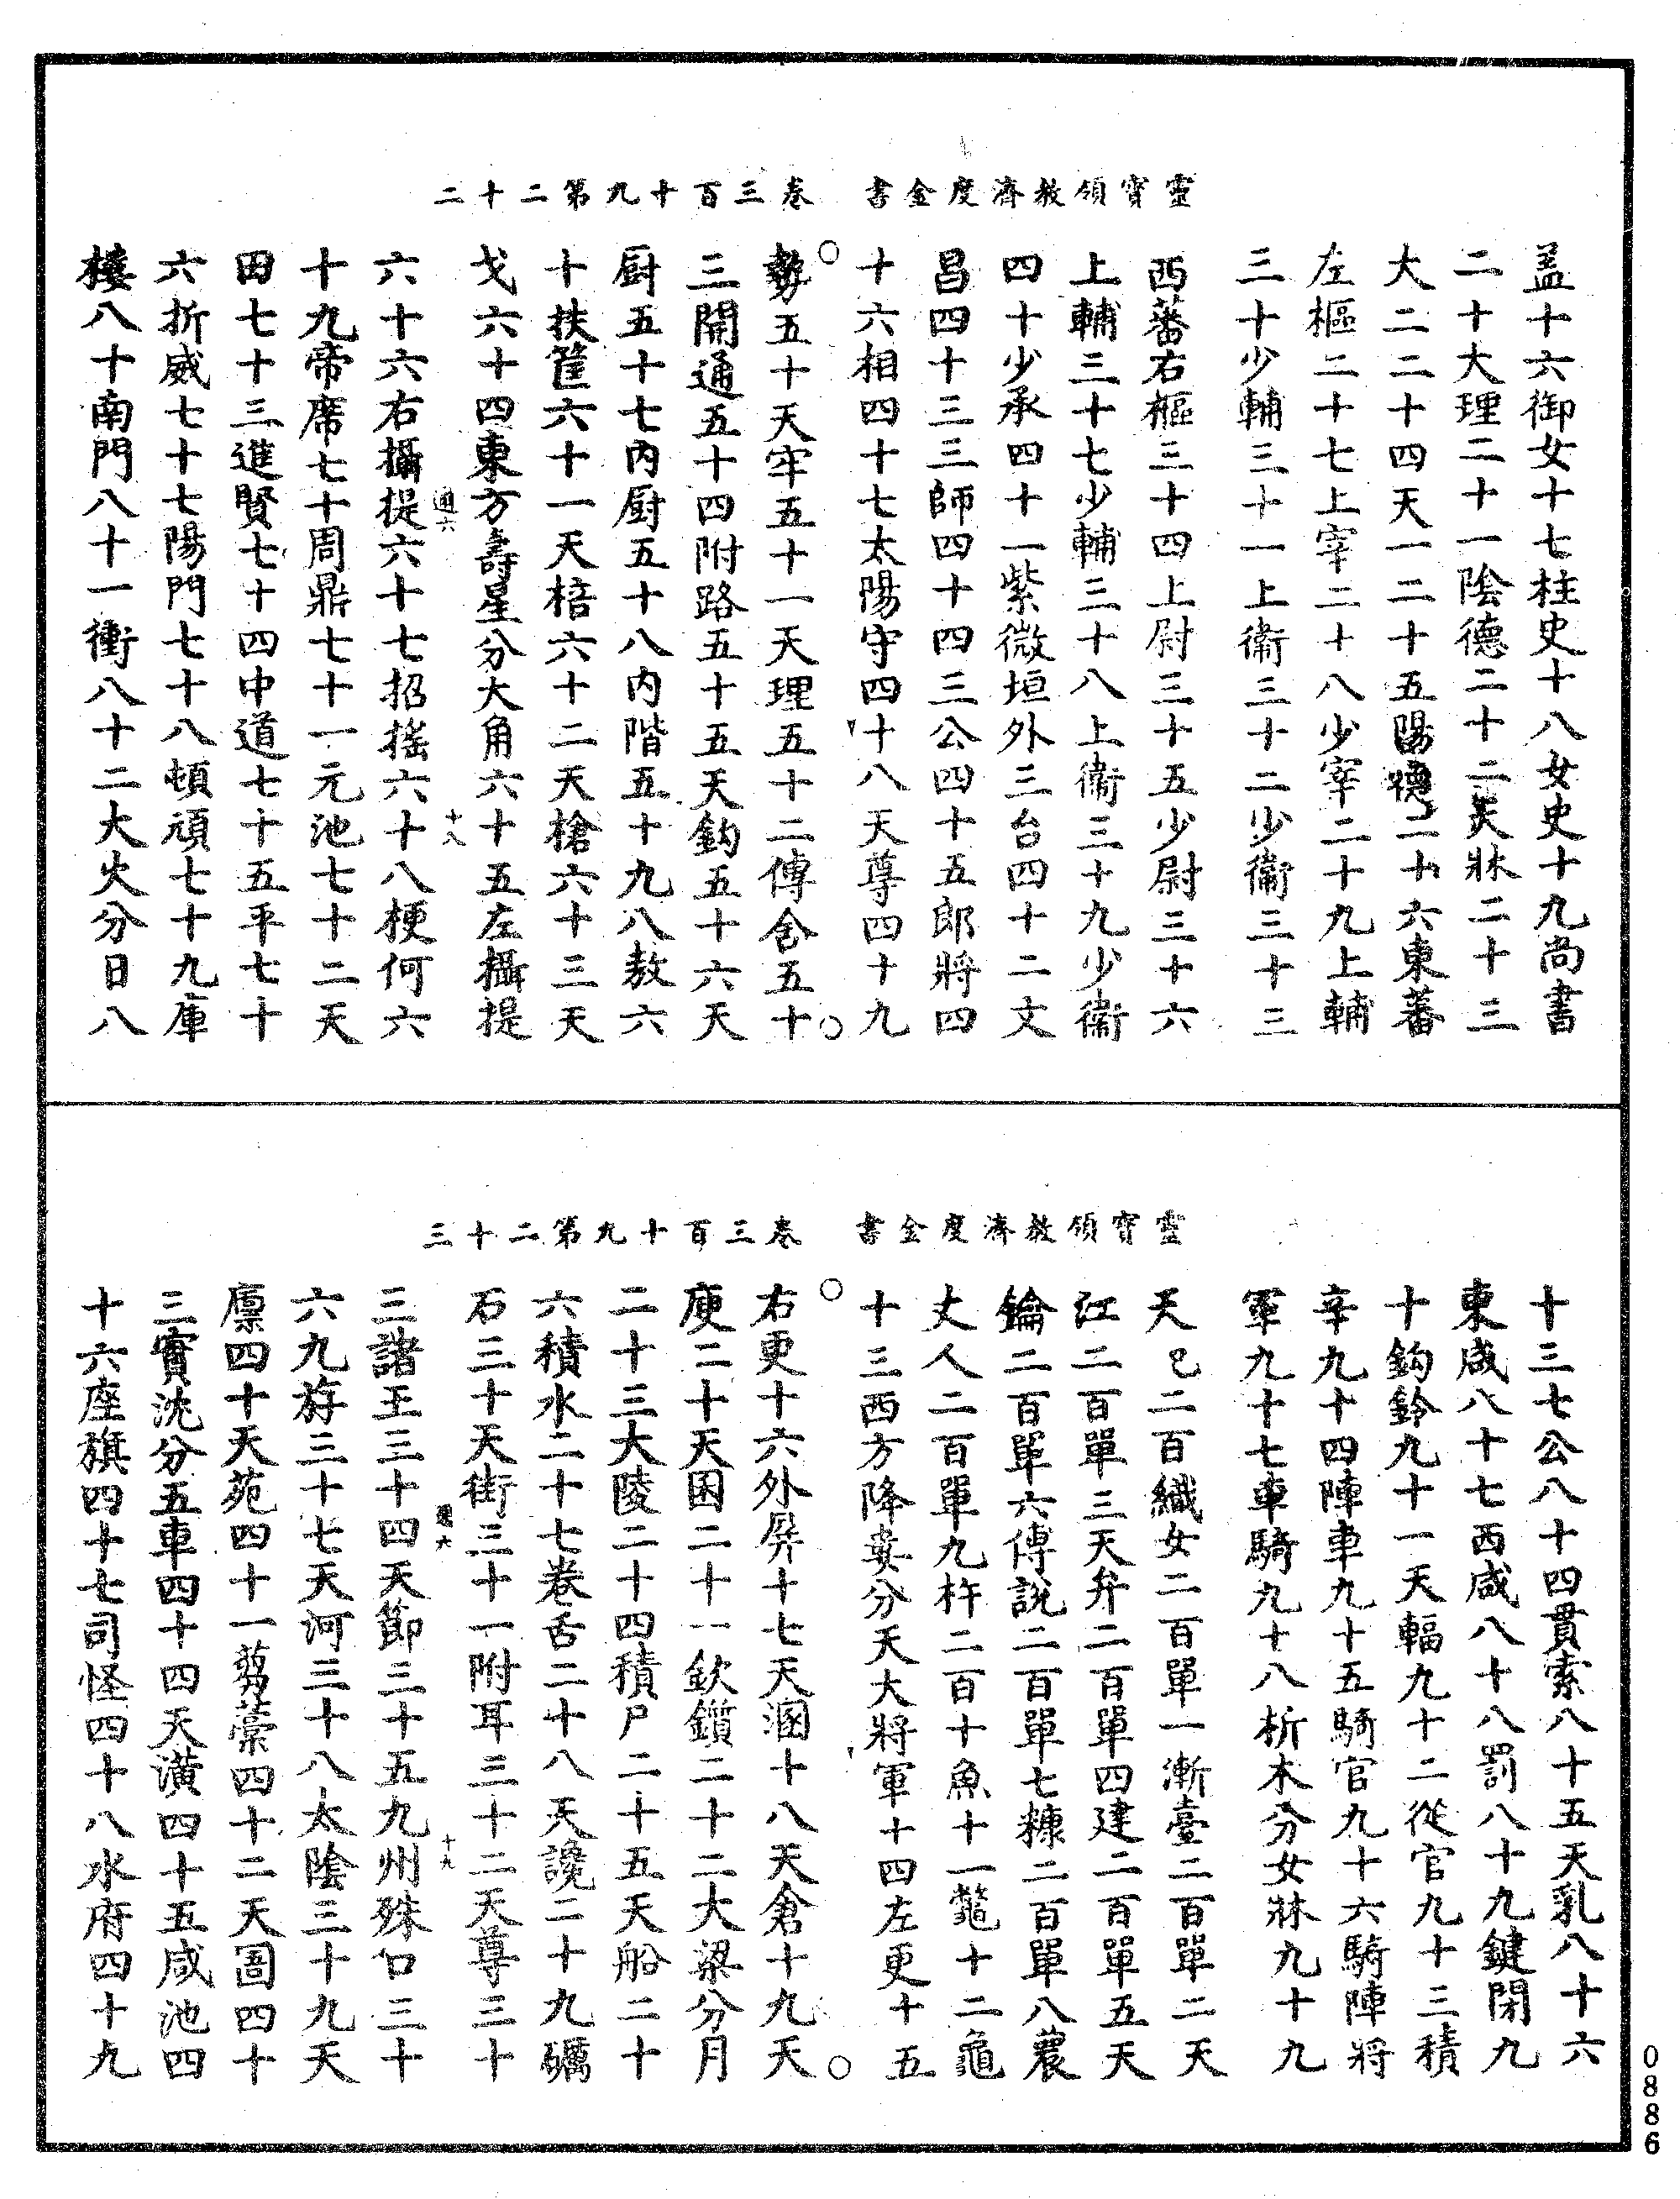 靈寶領教濟度金書　卷三百十九第二十二
盖十六御女十七柱史十八女史十九尚書
二十大理二十一陰德二十二天牀二十三
大二二十四天一二十五陽德二十六東蕃
左樞二十七上宰二十八少宰二十九上輔
三十少輔三十一上衛三十二少衛三十三
西蕃右樞三十四上尉三十五少尉三十六
上輔三十七少輔三十八上衛三十九少衛
四十少承四十一紫微垣外三台四十二文
昌四十三三師四十四三公四十五郎將四
十六相四十七太陽守四十八天尊四十九
○
勢五十天牢五十一天理五十二傳舍五十
三開通五十四附路五十五天鈎五十六天
厨五十七内厨五十八内階五十九八敖六
十扶筐六十一天棓六十二天槍六十三天
戈六十四東方壽星分大角六十五左攝提
通六　十八
六十六右攝提六十七招摇六十八梗何六
十九帝席七十周鼎七十一元池七十二天
田七十三進賢七十四中道七十五平七十
六折威七十七陽門七十八頓頑七十九庫
樓八十南門八十一衝八十二大火分日八
靈寶領教濟度金書　卷三百十九第二十三
十三七公八十四貫索八十五天乳八十六
東咸八十七西咸八十八罰八十九鍵閉九
十鈎鈴九十一天輻九十二從官九十三積
辛九十四陣車九十五騎官九十六騎陣將
軍九十七車騎九十八析木分女牀九十九
天已二百織女二百單一漸臺二百單二天
江二百單三天弁二百單四建二百單五天
鑰二百單六傅說二百單七糠二百單八農
丈人二百單九杵二百十魚十一鼈十二龜
十三西方降婁分天大將軍十四左更十五
○
右更十六外屏十七天溷十八天倉十九天
庾二十天囷二十一鈥鑕二十二大梁分月
二十三大陵二十四積尸二十五天船二十
六積水二十七卷舌二十八天讒二十九礪
石三十天街三十一附耳三十二天尊三十
通六　十九
三諸王三十四天節三十五九州殊口三十
六九斿三十七天河三十八太陰三十九天
廪四十天苑四十一蒭藁四十二天圄四十
三實沈分五車四十四天潢四十五咸池四
十六座旗四十七司怪四十八水府四十九
0886